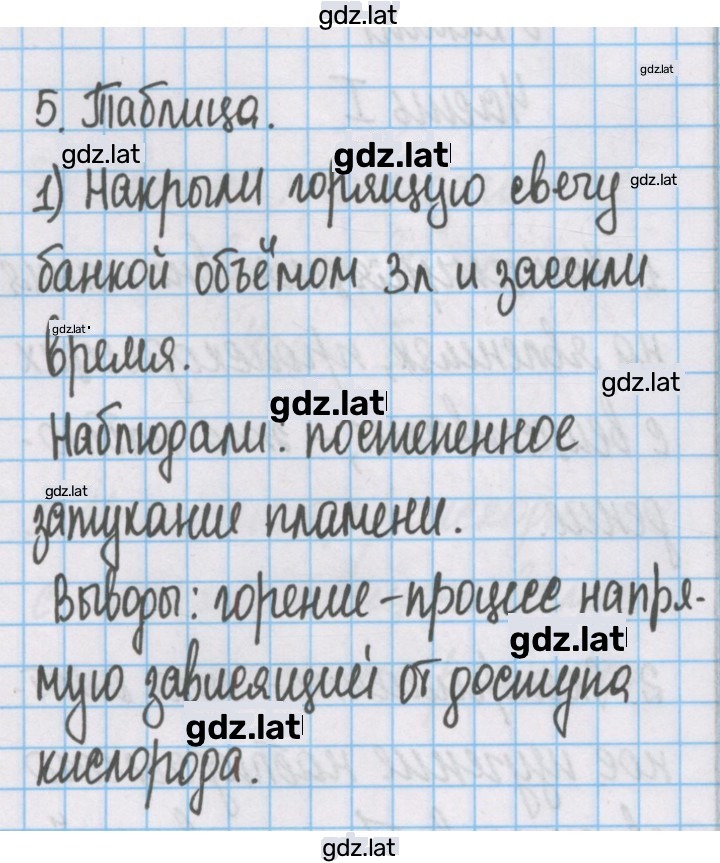 gdz.lat
gdz.lat
5. Таблица.
gdz.lat
gdz.lat
1) Накрыли горящую свечу
gdz.lat
банкой объёмом 3л и засекли
gdz.lat
время.
gdz.lat
gdz.lat
Наблюдали: постепенное
gdz.lat
затухание пламени.
Выводы: горение – процесс напря-
gdz.lat
мую зависящий от доступа
gdz.lat
кислорода.
gdz.lat